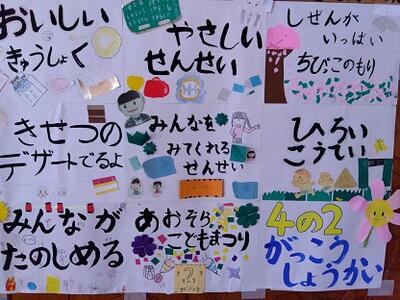 おいしい
きゅうしょく
やさしい
せんせい
しぜんが
いっぱい
ちびっこのもり
きせつの
デザートでるよ
みんなを
みてくれる
せんせい
ひろい
こうてい
みんなが
たのしめる
あおぞら
こどもまつり
4の2
がっこう
しょうかい